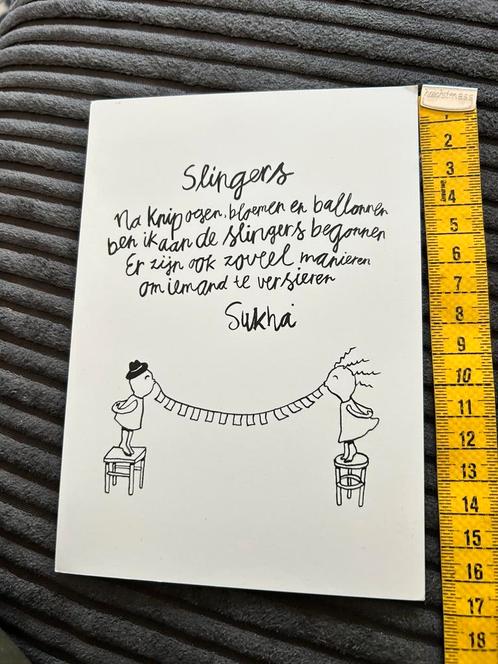 Slingers
Na knipogen, bloemen en ballonnen
ben ik aan de slingers begonnen
Er zijn ook zoveel manieren
om iemand te versieren
Sukha
1
2
3
4
5
6
7
8
9
10
11
12
13
14
15
16
17
18